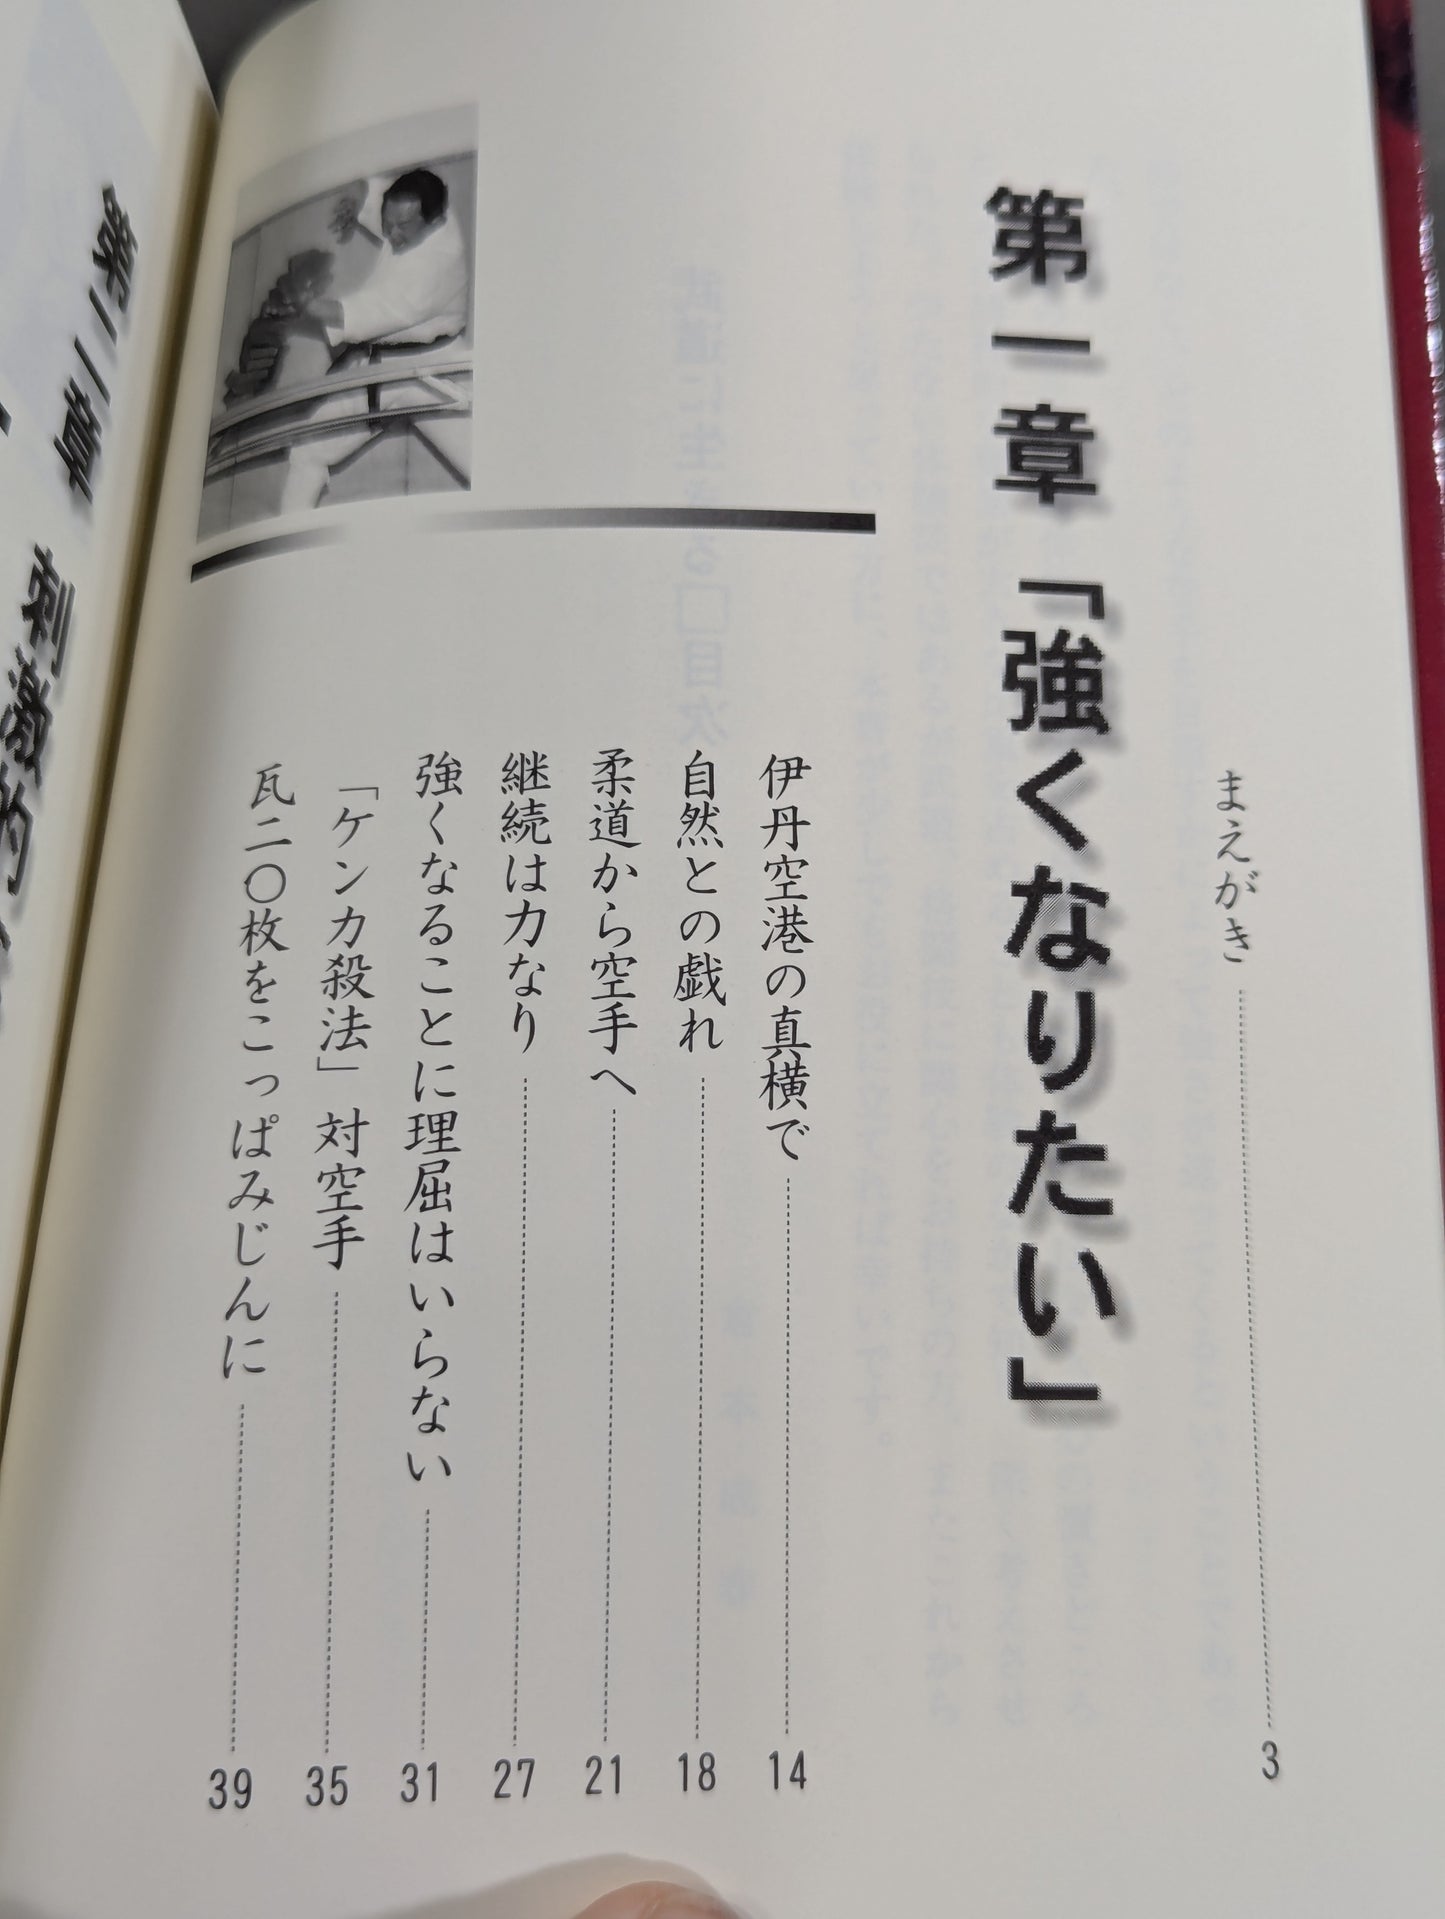 まえがき 3
第一章「強くなりたい」
伊丹空港の真横で 14
自然との戯れ 18
柔道から空手へ 21
継続は力なり 27
強くなることに理屈はいらない 31
「ケンカ殺法」対空手 35
瓦二〇枚をこっぱみじんに 39
第二章
刺激的